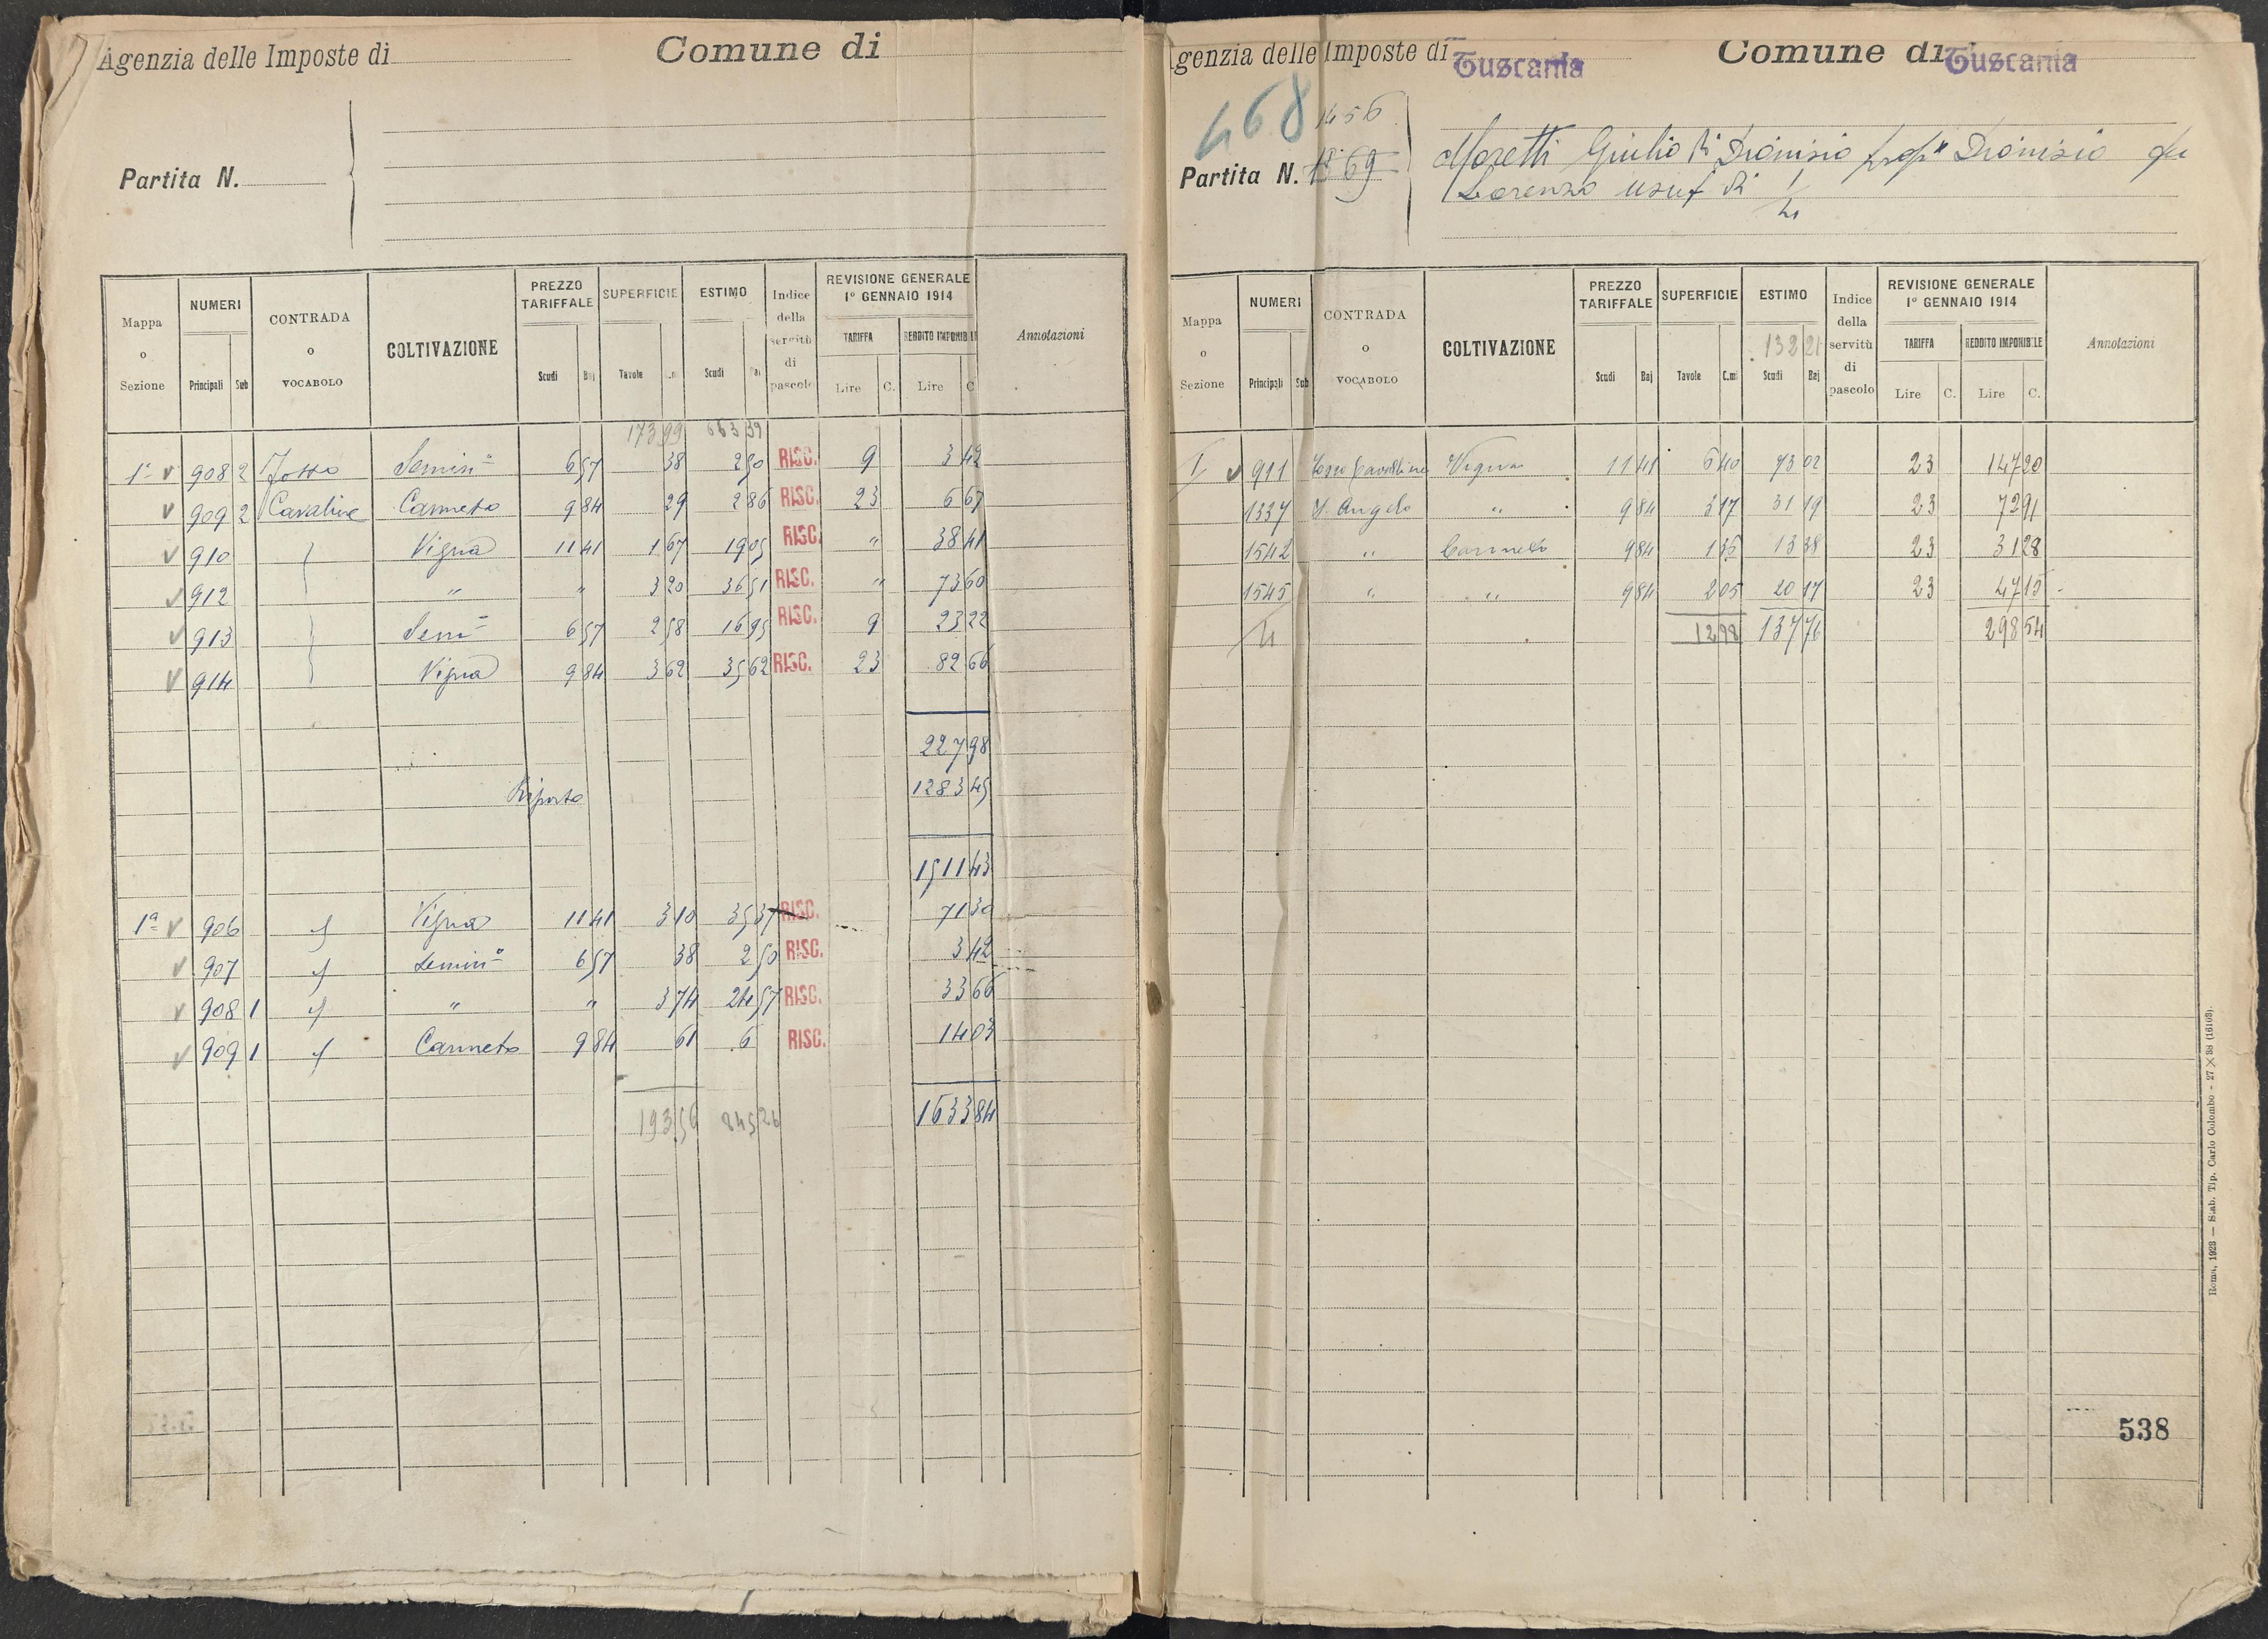 Agenzia delle Imposte di
Comune di
Partita N.
Mappa o Sezione
NUMERI
Principali Sub
CONTRADA o VOCABOLO
COLTIVAZIONE
PREZZO TARIFFALE
Scudi Baj
SUPERFICIE
Tavole C.mi
ESTIMO
Scudi Baj
Indice della servitù di pascolo
REVISIONE GENERALE 1º GENNAIO 1914
TARIFFA
Lire C.
REDDITO IMPONIBILE
Lire C.
Annotazioni
173 99 663 39
1ª 908 2 Fosso Semin° 6 57 38 2 50 RISC. 9 3 42
909 2 Cavaline Canneto 9 84 29 2 86 RISC. 23 6 67
910 Vigna 11 41 1 67 19 05 RISC. " 38 41
912 " " 3 20 36 51 RISC. " 73 60
913 Sem° 6 57 2 58 16 95 RISC. 9 23 22
914 Vigna 9 84 3 62 35 62 RISC. 23 82 66
227 98
Riporto 1283 45
1511 43
1ª 906 Vigna 11 41 3 10 35 37 RISC. 71 30
907 Semin° 6 57 38 2 50 RISC. 3 42
908 1 " " 3 74 24 57 RISC. 33 66
909 1 Canneto 9 84 61 6 RISC. 14 03
193 56 845 26 1633 84
Agenzia delle Imposte di Tuscania
Comune di Tuscania
468 1456
Partita N. 1369
Moretti Giulio di Dionisio prop° Dionisio fu
Lorenzo usuf di
Mappa o Sezione
NUMERI
Principali Sub
CONTRADA o VOCABOLO
COLTIVAZIONE
PREZZO TARIFFALE
Scudi Baj
SUPERFICIE
Tavole C.mi
ESTIMO
132 21
Scudi Baj
Indice della servitù di pascolo
REVISIONE GENERALE 1º GENNAIO 1914
TARIFFA
Lire C.
REDDITO IMPONIBILE
Lire C.
Annotazioni
I 911 Fosso Cavalline Vigna 11 41 6 40 73 02 23 147 20
1337 S. Angelo " 9 84 3 17 31 19 23 72 91
1542 " Canneto 9 84 1 36 13 38 23 31 28
1545 " " 9 84 2 05 20 17 23 47 15
4 12 98 137 76 298 54
538
Roma, 1923 — Stab. Tip. Carlo Colombo - 27 × 38 (16103).